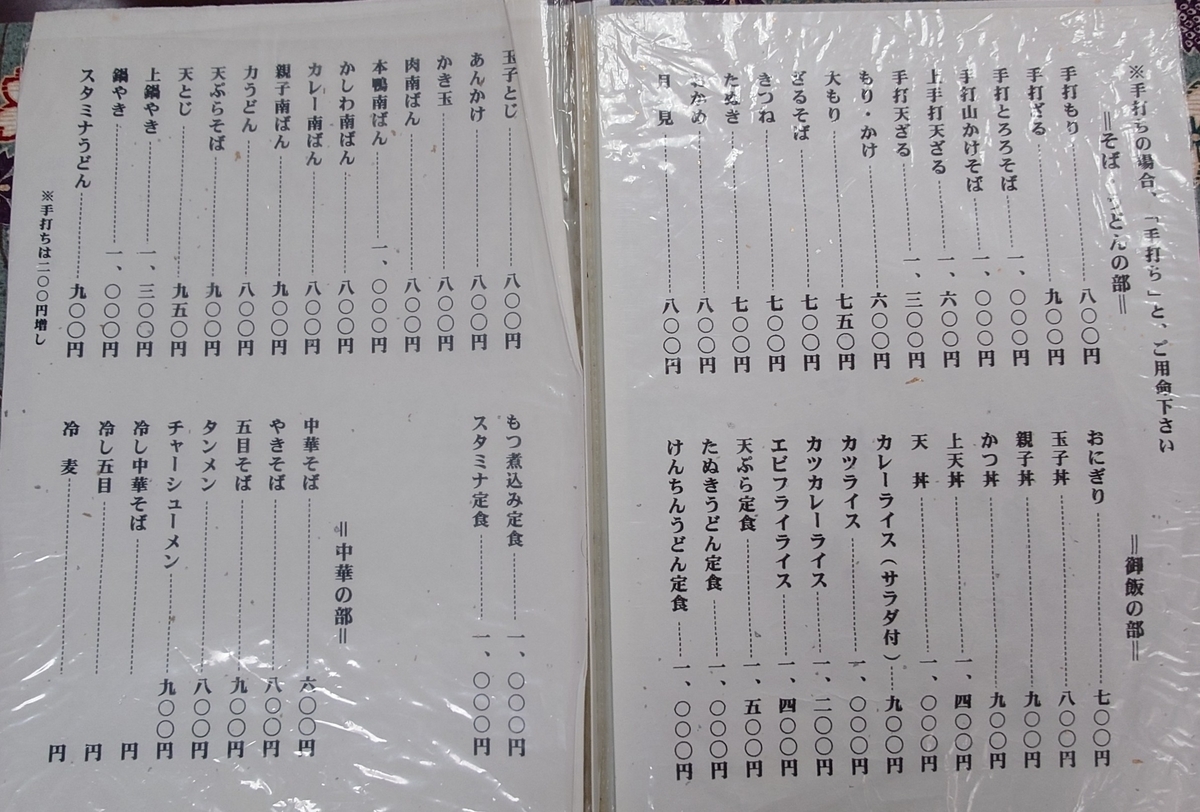 ※手打ちの場合、「手打ら」と、ご用命下さい
＝そば・うどんの部＝
手打もり 八〇〇円
手打ざる 九〇〇円
手打とろろそば 一、〇〇〇円
手打山かけそば 一、〇〇〇円
上手打天ざる 一、六〇〇円
手打天ざる 一、三〇〇円
もり・かけ 六〇〇円
大もり 七五〇円
ざるそば 七〇〇円
きつね 七〇〇円
たぬき 七〇〇円
おかめ 八〇〇円
月見 八〇〇円
＝御飯の部＝
おにぎり 七〇〇円
玉子丼 八〇〇円
親子丼 九〇〇円
かつ丼 九〇〇円
上天丼 一、四〇〇円
天丼 一、〇〇〇円
カレーライス（サラダ付） 九〇〇円
カツライス 一、〇〇〇円
カツカレーライス 一、二〇〇円
エビフライライス 一、四〇〇円
天ぷら定食 一、五〇〇円
たぬきうどん定食 一、〇〇〇円
けんちんうどん定食 一、〇〇〇円
玉子とじ 八〇〇円
あんかけ 八〇〇円
かき玉 八〇〇円
肉南ばん 八〇〇円
本鴨南ばん 一、〇〇〇円
かしわ南ばん 八〇〇円
カレー南ばん 八〇〇円
親子南ばん 九〇〇円
力うどん 八〇〇円
天ぷらそば 九〇〇円
天とじ 九五〇円
上鍋やき 一、三〇〇円
鍋やき 一、〇〇〇円
スタミナうどん 九〇〇円
※手打ちは二〇〇円増し
もつ煮込み定食 一、〇〇〇円
スタミナ定食 一、〇〇〇円
＝中華の部＝
中華そば 六〇〇円
やきそば 八〇〇円
五目そば 九〇〇円
タンメン 八〇〇円
チャーシューメン 九〇〇円
冷し中華そば 円
冷し五目 円
冷麦 円